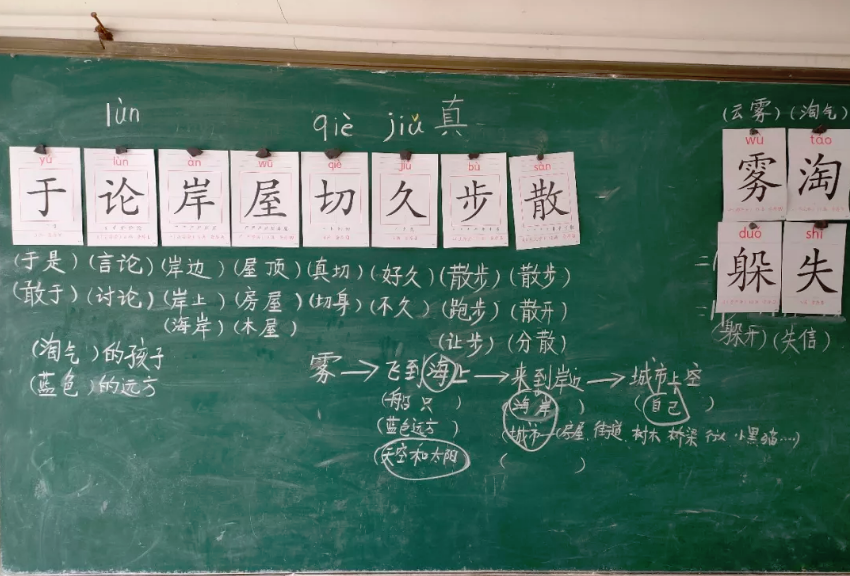 lùn qiè jiǔ 真
(云雾)(淘气)
yú lùn àn wū qiè jiǔ bù sàn
于 论 岸 屋 切 久 步 散
wù táo
雾 淘
duǒ shī
躲 失
(于是)(言论)(岸边)(屋顶)(真切)(好久)(散步)(散步)
(敢于)(讨论)(岸上)(房屋)(切身)(不久)(跑步)(散开)
(海岸)(木屋) (让步)(分散)
(躲开)(失信)
(淘气)的孩子
(蓝色)的远方
雾→飞到海上→来到岸边→城市上空
(船只) (海岸) (自己)
(蓝色远方) (城市—(房屋、街道、树木、桥梁 行人 小黑猫……)
(天空和太阳) ( )